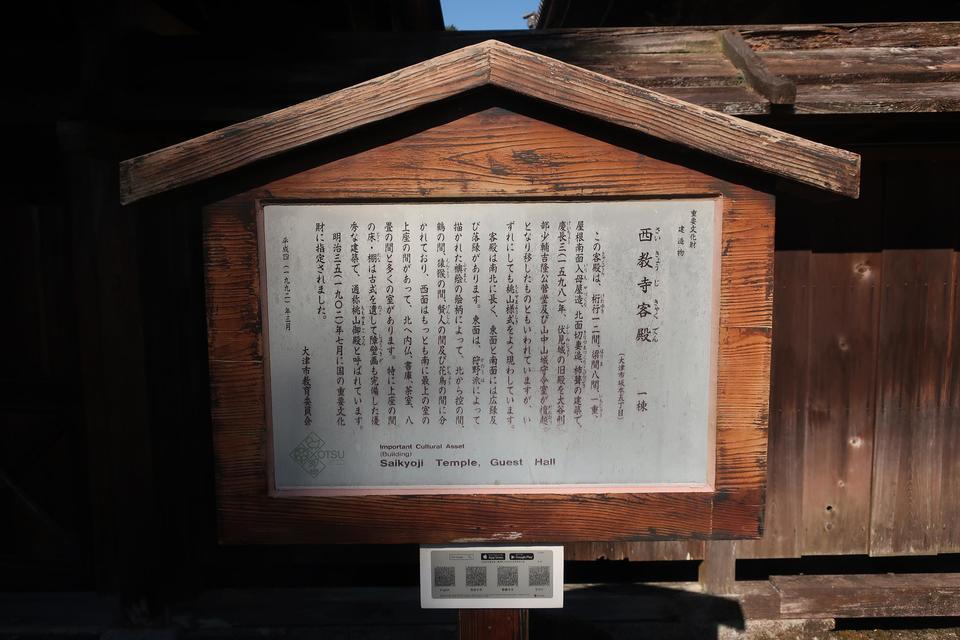 重要文化財
建造物
西教寺客殿　一棟
さいきょうじきゃくでん
(大津市坂本五丁目)
この客殿は、桁行一二間、梁間八間、一重、
屋根南面入母屋造、北面切妻造、杮葺の建築で、
慶長三(一五九八)年、伏見城の旧殿を大谷刑
部少輔吉隆公営堂及び山中山城守令室が
となり移したものともいわれていますが、い
ずれにしても桃山様式をよく現わしています。
客殿は南北に長く、東面と南面には広縁及
び落縁があります。東面は、狩野派によって
描かれた襖絵の絵柄によって、北から控の間、
鶴の間、猿猴の間、賢人の間及び花鳥の間に分
かれており、西面はもっとも南に最上の室の
上座の間があって、北へ内仏、書庫、茶室、八
畳の間と多くの室があります。特に上座の間
の床・棚は古式を遺して障壁画も完備した優
秀な建築で、通称桃山御殿と呼ばれています。
明治三五(一九〇二)年七月に国の重要文化
財に指定されました。
平成四(一九九二)年三月
大津市教育委員会
Important Cultural Asset
(Building)
Saikyoji Temple, Guest Hall
OTSU
App Store
Google Play
English